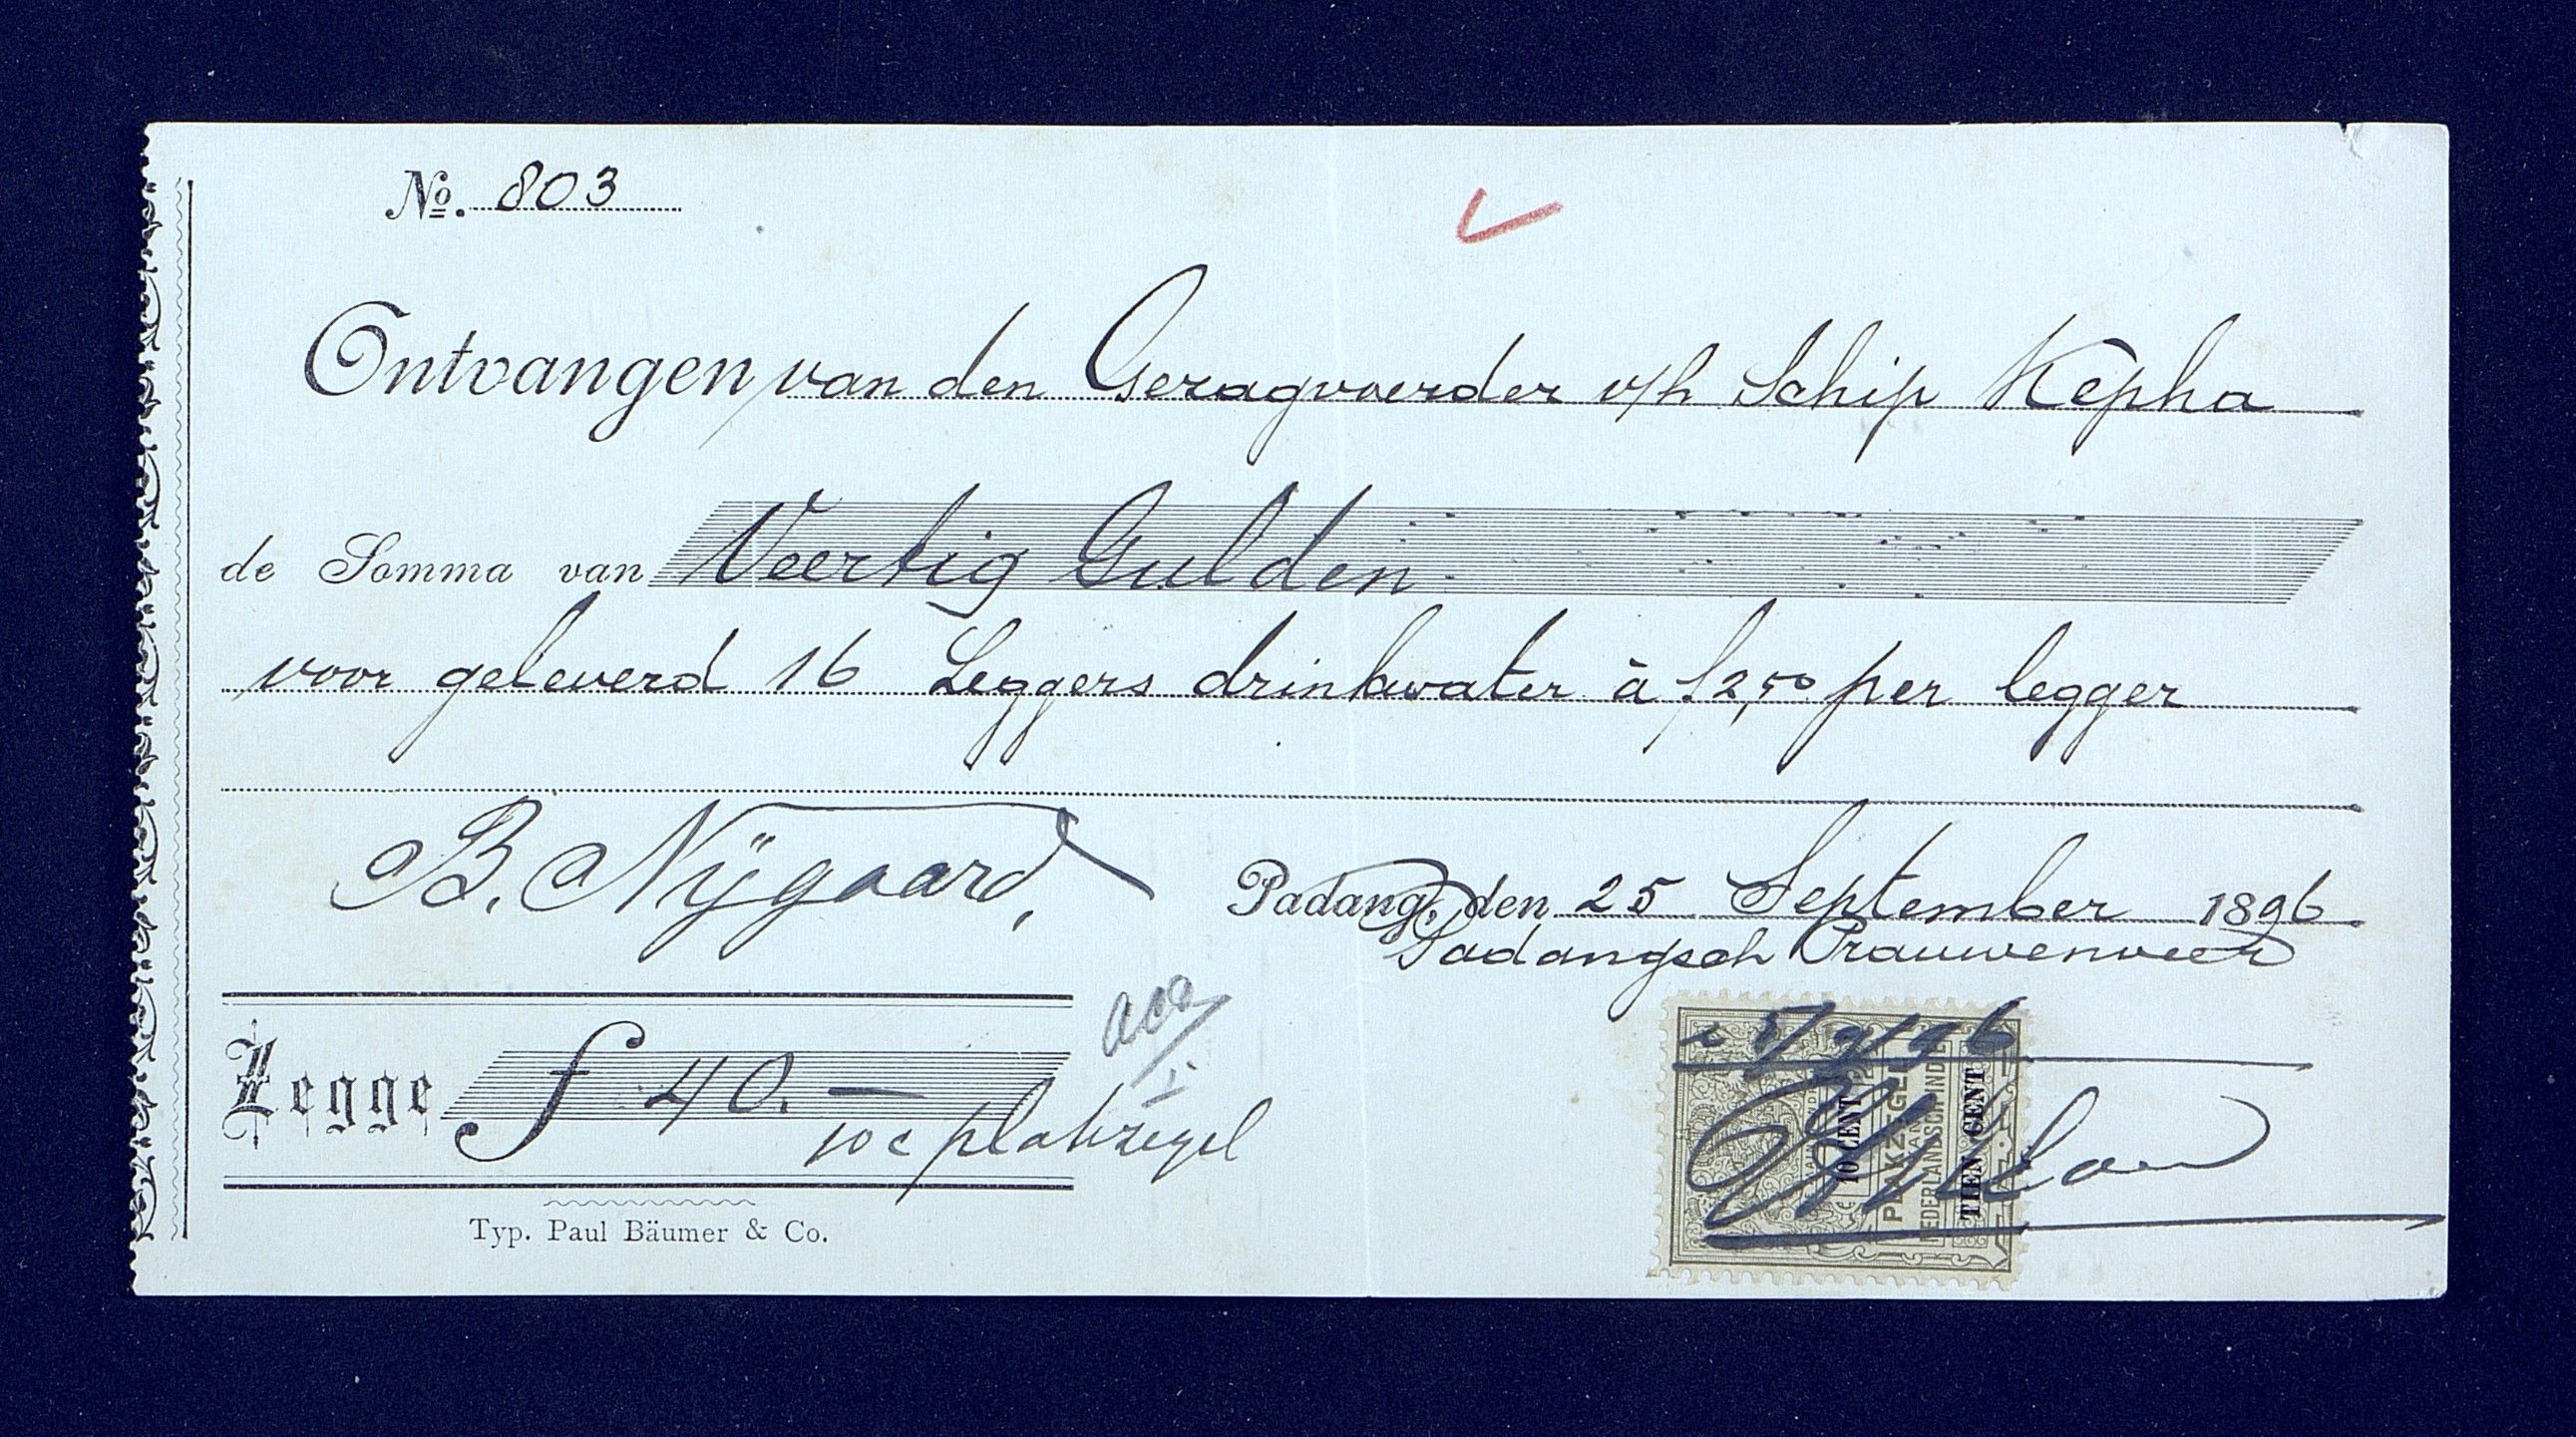 No. 803
Ontvangen van den Gezagvoerder v/h Schip Kepha
de Somma van Veertig Gulden
voor geleverd 16 Leggers drinkwater à f 2,50 per legger
B. Nÿgaard,
Padang, den 25 September 1896
Padangsch Prauwenveer
Zegge f 40. —
10 c plakzegel
Typ. Paul Bäumer & Co.
25/9/96
10 CENT
PLAKZEGEL
NEDERLANDSCH INDIE
TIEN CENT